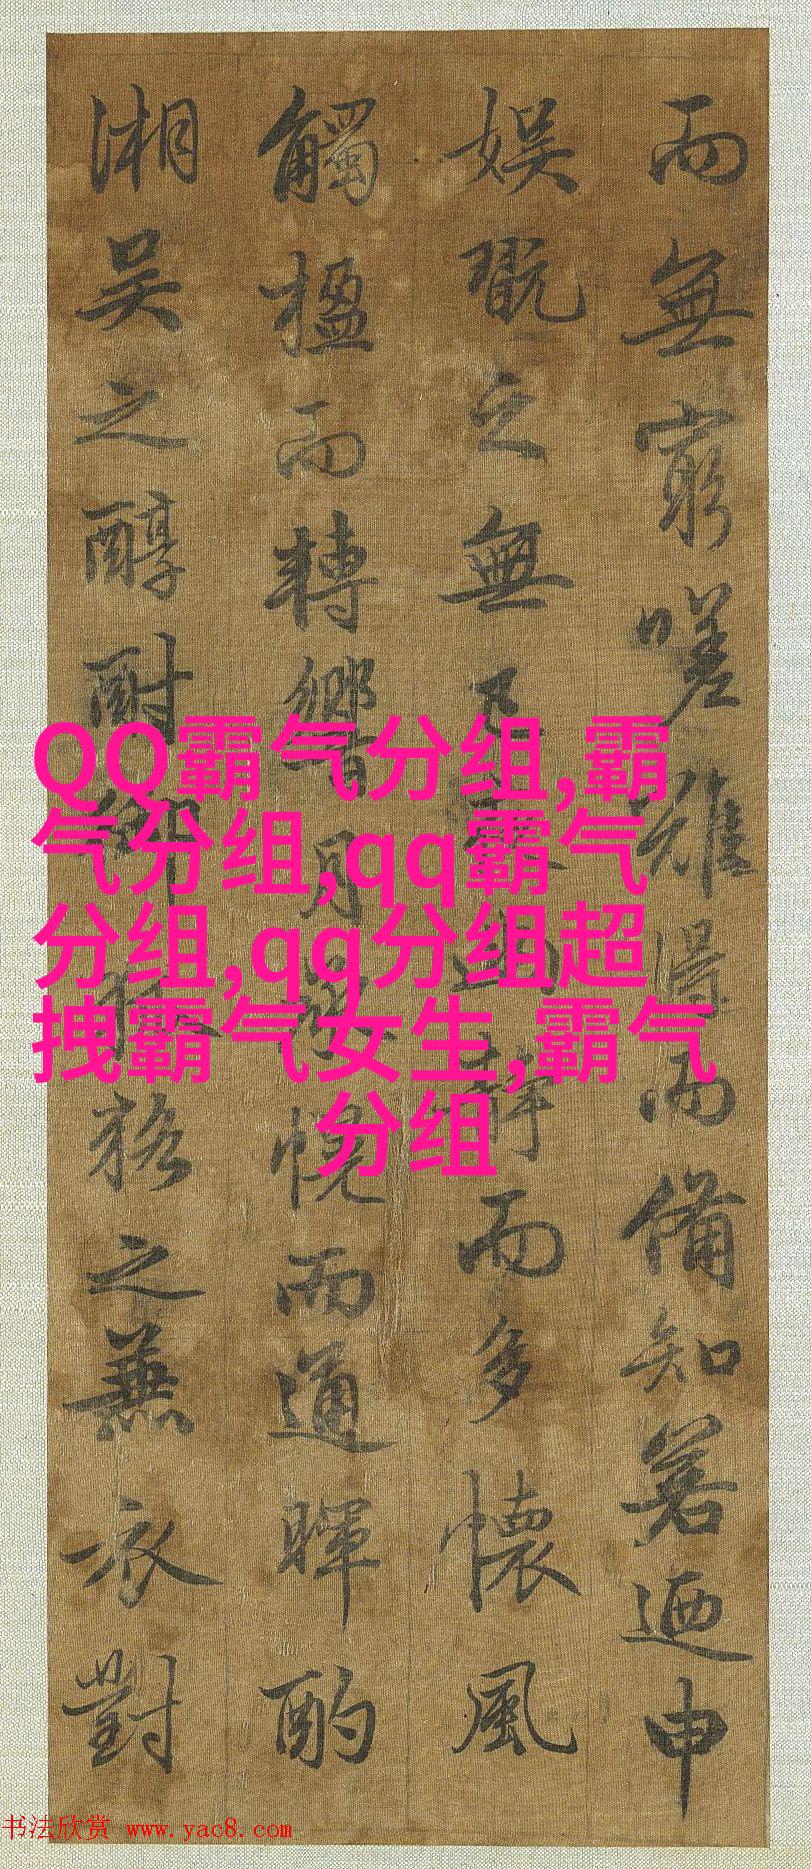 而無窮嗟難得而備知若迺申
娛翫之無靜而多懷風
觸楹而轉響月幌而通暉酌
湘吳之醇酎之兼衣對
QQ霸气分组,霸
气分组,qq霸气
分组,qq分组超
拽霸气女生,霸气
分组
书法欣赏 www.yac8.com